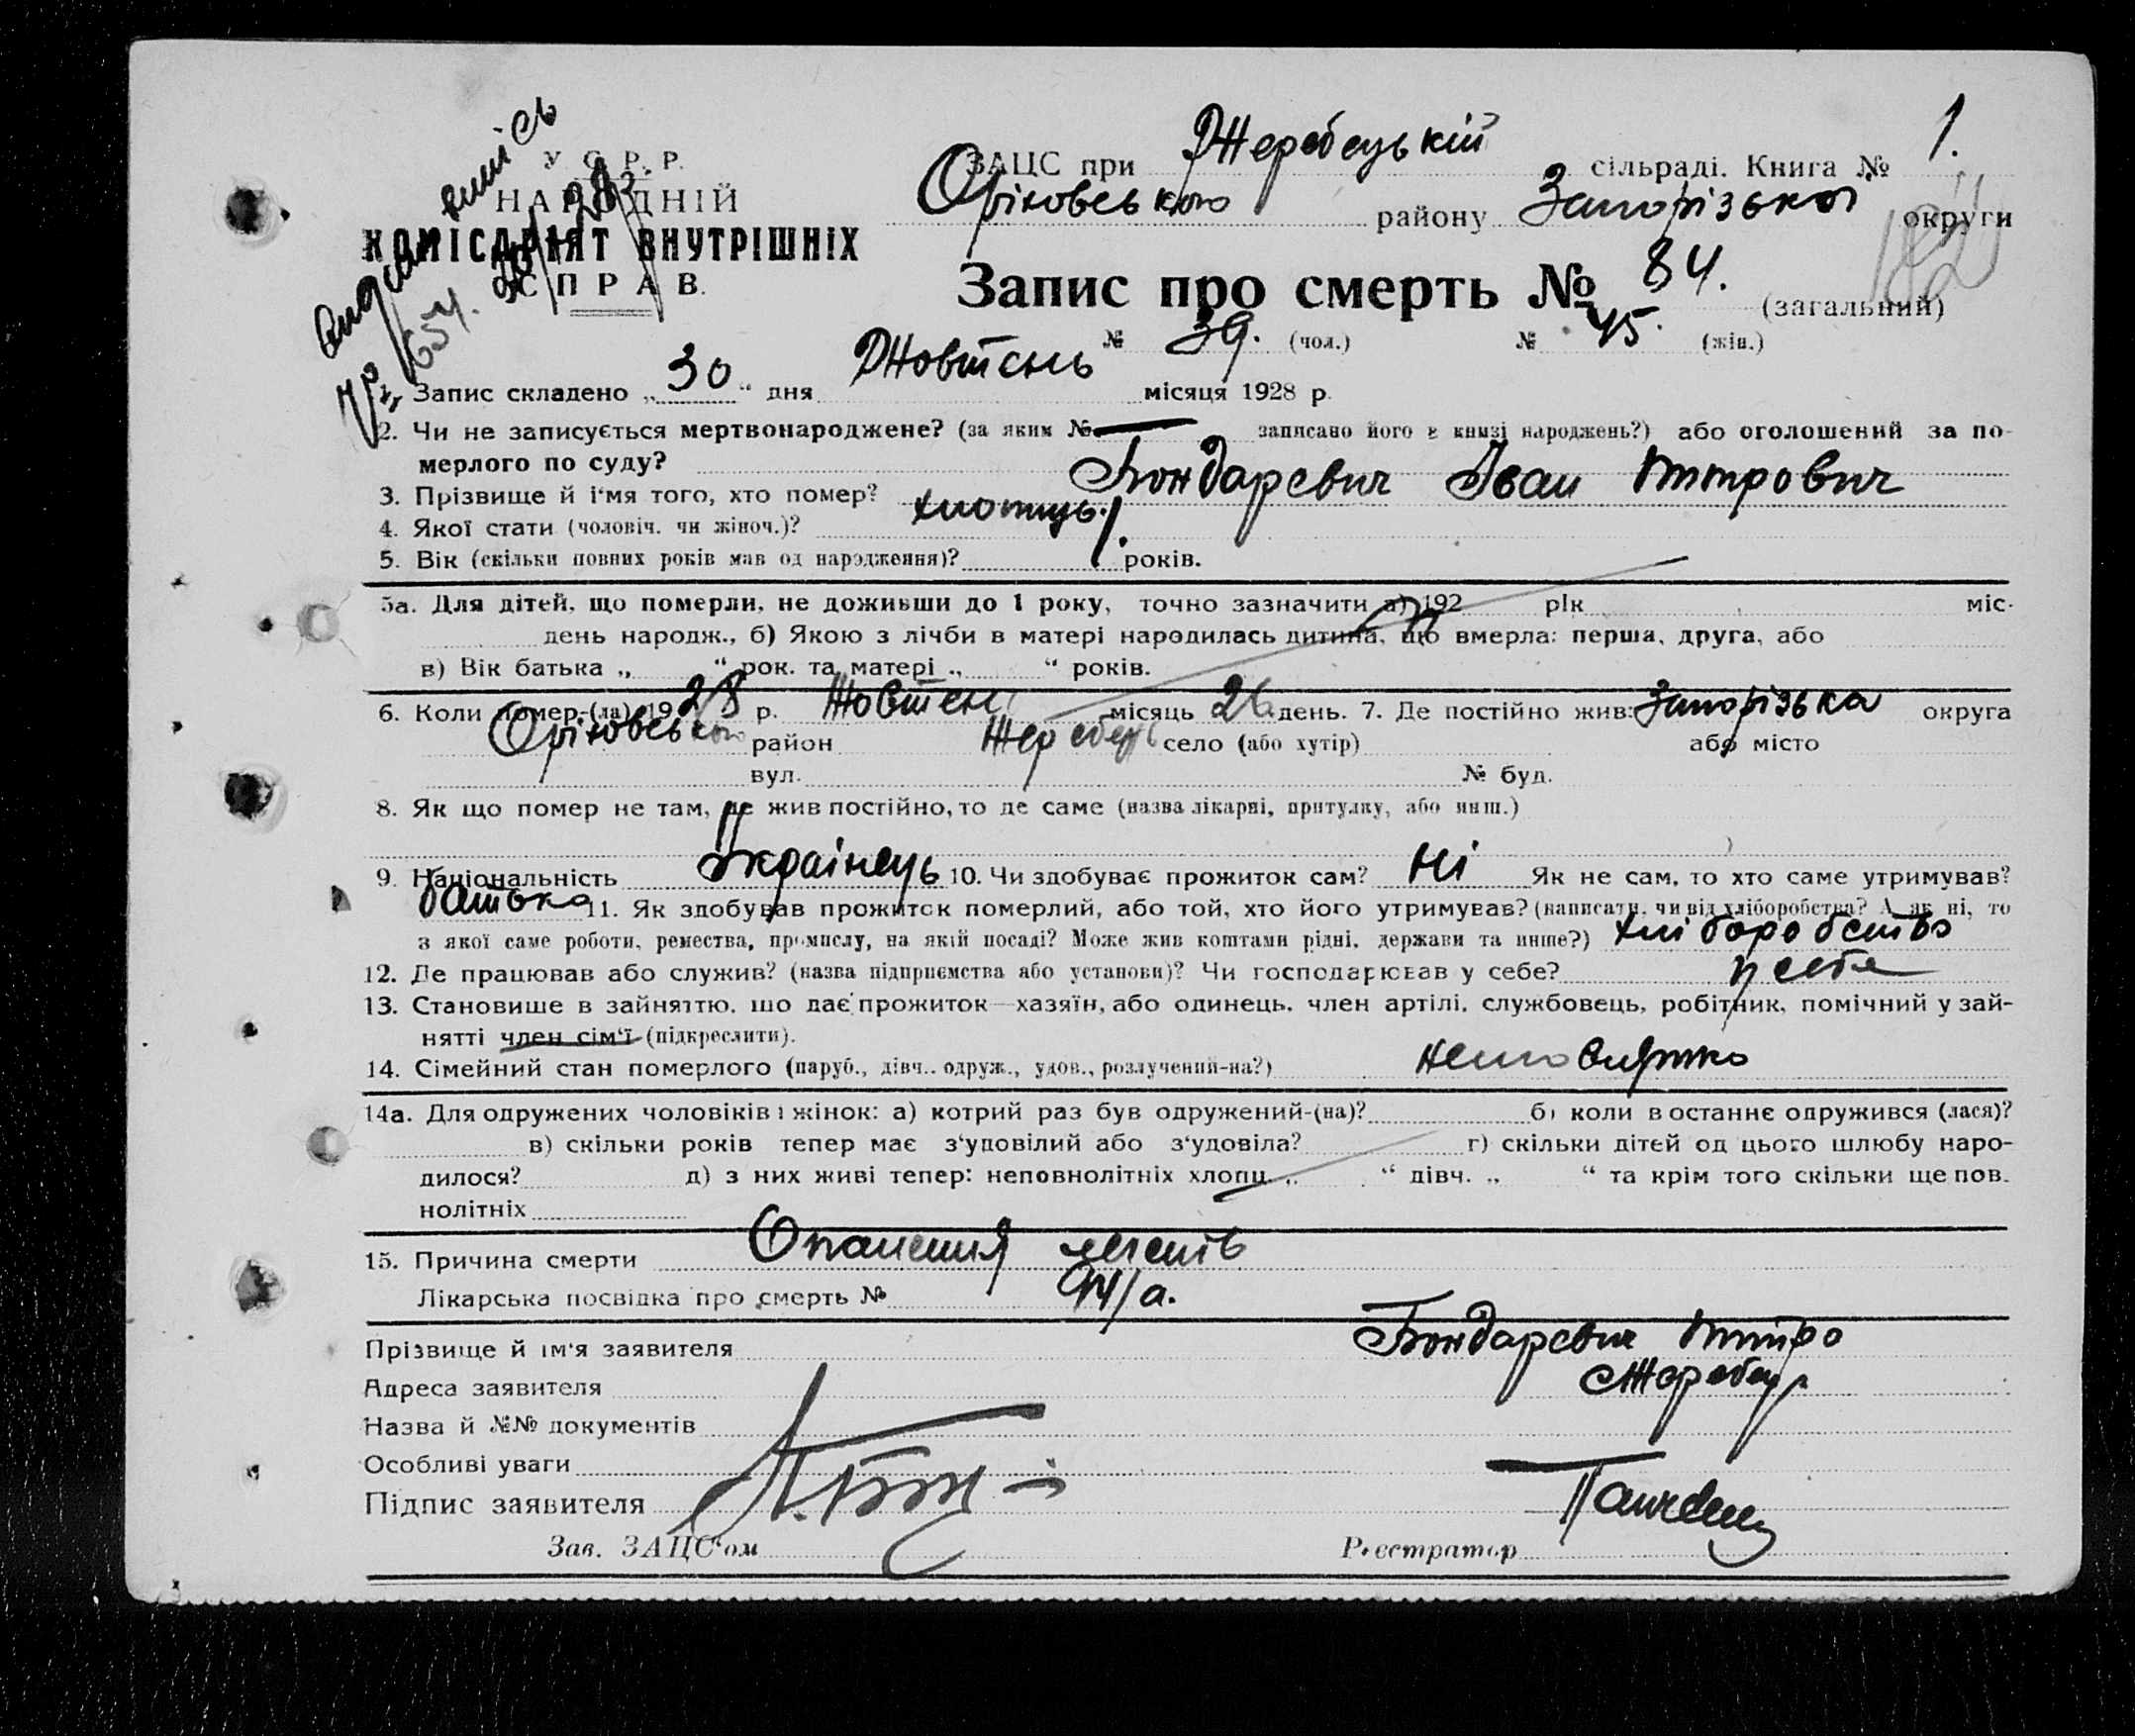 У С. Р. Р.
НАРОДНІЙ
КОМІСАРІЯТ ВНУТРІШНІХ
СПРАВ.
ЗАЦС при Жеребецькій сільраді. Книга № 1.
Оріховського району Запорізької округи
Запис про смерть № 84. (загальний)
№ 39. (чол.) № 45. (жін.)
Запис складено „30“ дня Жовтень місяця 1928 р.
2. Чи не записується мертвонароджене? (за яким № записано його в книзі народжень?) або оголошений за по-
мерлого по суду?
3. Прізвище й і'мя того, хто помер? Бондаревич Іван Пітрович
4. Якої стати (чоловіч. чи жіноч.)? хлопець
5. Вік (скільки повних років мав од народження)? 1 років.
5а. Для дітей, що померли, не доживши до 1 року, точно зазначити а) 192 рік міс.
день народж., б) Якою з лічби в матері народилась дитина, що вмерла: перша, друга, або
в) Вік батька „ “ рок. та матері „ “ років.
6. Коли помер-(ла) 1928 р. Жовтень місяць 26 день. 7. Де постійно жив: Запорізька округа
Оріховського район Жеребець село (або хутір) або місто
вул. № буд.
8. Як що помер не там, де жив постійно, то де саме (назва лікарні, притулку, або инш.)
9. Національність Українець 10. Чи здобуває прожиток сам? Ні Як не сам, то хто саме утримував?
батько 11. Як здобував прожиток померлий, або той, хто його утримував? (написати, чи від хліборобства? А як ні, то
з якої саме роботи, ремества, промислу, на якій посаді? Може жив коштами рідні, держави та инше?) хліборобство
12. Де працював або служив? (назва підприємства або установи)? Чи господарював у себе? у себе
13. Становише в зайняттю, що дає прожиток—хазяїн, або одинець, член артілі, службовець, робітник, помічний у зай-
нятті член сім'ї (підкреслити).
14. Сімейний стан померлого (паруб., дівч., одруж., удов., розлучений-на?)
14а. Для одружених чоловіків і жінок: а) котрий раз був одружений-(на)? б) коли в останнє одружився (лася)?
в) скільки років тепер має з'удовілий або з'удовіла? г) скільки дітей од цього шлюбу наро-
дилося? д) з них живі тепер: неповнолітніх хлопц. „ “ дівч. „ “ та крім того скільки ще пов.
нолітніх
15. Причина смерти Опалення легенів
Лікарська посвідка про смерть №
Прізвище й ім'я заявителя Бондаревич Пітро
Адреса заявителя с Жеребець
Назва й №№ документів
Особливі уваги
Підпис заявителя
Зав. ЗАЦС'ом Реєстратор